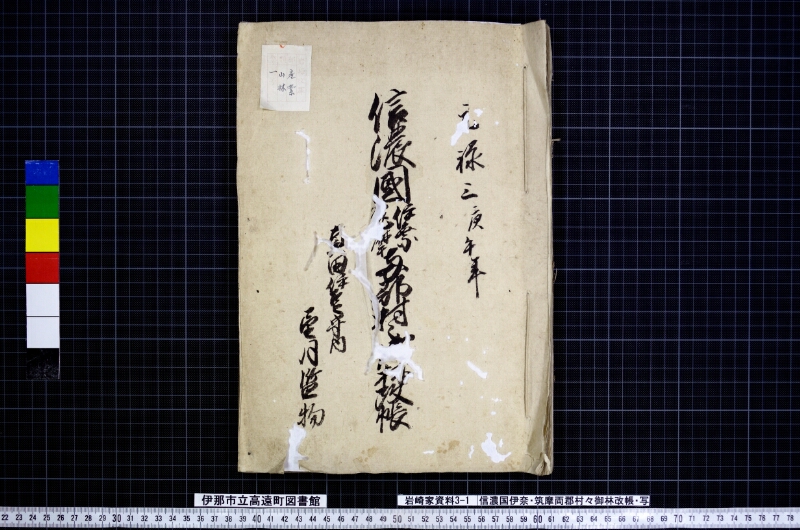 元禄三庚午年
信濃國伊奈筑摩両郡村々御林改帳
真田伊豆守内
望月監物
産業
一山林
伊那市立高遠町図書館
岩崎家資料3-1 信濃国伊奈・筑摩両郡村々御林改帳・写
22 23 24 25 26 27 28 29 30 31 32 33 34 35 36 37 38 39 40 41 42 43 44 45 46 47 48 49 50 51 52 53 54 55 56 57 58 59 60 61 62 63 64 65 66 67 68 69 70 71 72 73 74 75 76 77 78